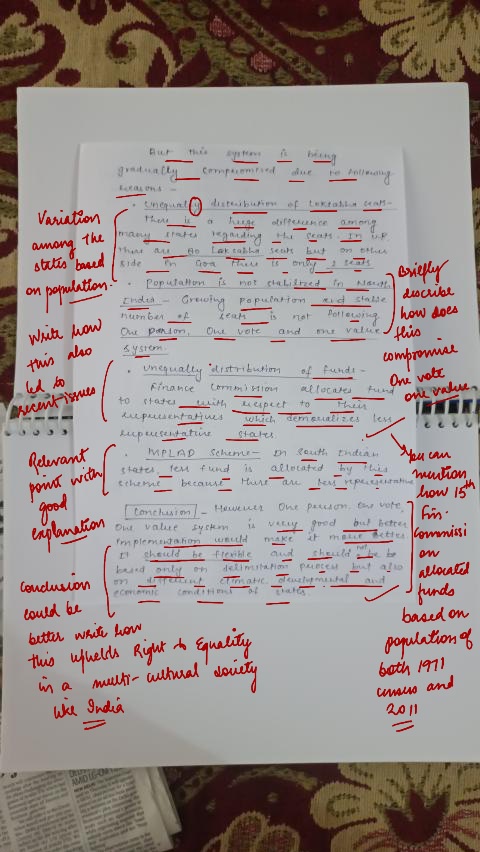 But this system is being
gradually compromised due to following
reasons -
• Unequally distribution of Loksabha seats-
There is a huge difference among
many states regarding the seats. In U.P.
there are 80 Loksabha seats but on other
side in Goa there is only 2 seats
• Population is not stabilized in North
India - Growing population and stable
number of seats is not following
One person, One vote and one value
System.
• Unequally distribution of funds -
Finance Commission allocates fund
to states with respect to their
representatives which demoralizes less
representative states.
• MPLAD Scheme - In South Indian
states, less fund is allocated by this
scheme because there are less representative
Conclusion - However One person, One vote,
One value system is very good but better
implementation would make it more better
It should be flexible and should not be
based only on delimitation process but also
on different climatic, developmental and
economic conditions of states.
Variation
among the
states based
on population.
Write how
this also
led to
recent issues
Relevant
point with
good
explanation
Conclusion
could be
better write how
this upholds Right to Equality
in a multi-cultural society
like India
Briefly
describe
how does
this
compromise
One vote
one value
You can
mention
how 15th
Fin.
Commissi
on
allocated
funds
based on
population of
both 1971
census and
2011